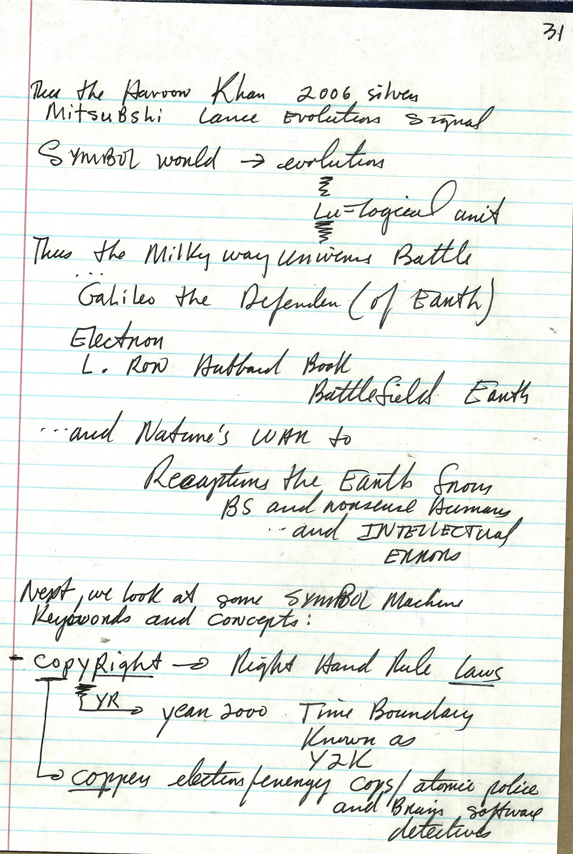 31
Thus the Haroon Khan 2006 silver
Mitsubshi Lance Evolution signal
SYMBOL world → evolution
Lu-logical unit
Thus the Milky way universe Battle
...
Galileo the Defender (of Earth)
Electron
L. Ron Hubbard Book
Battlefield Earth
...and Nature's WAR to
Recapture the Earth from
BS and nonsense Humans
...and INTELLECTUAL
ERRORS
Next, we look at some SYMBOL Machine
Keywords and concepts:
- copyRight → Right Hand Rule Laws
YR → year 2000 Time Boundary
Known as
Y2K
→ copper electron/energy cops/atomic police
and Brain software
detectives